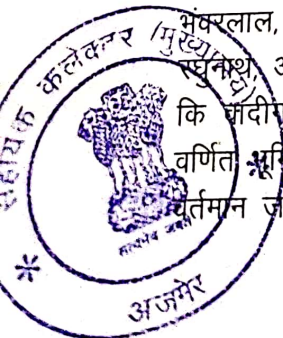 भंवरलाल,
रघुनाथ, अ
कि वादीग
वर्णित भूमि
वर्तमान ज
सहायक कलेक्टर (मुख्यालय)
सत्यमेव जयते
* अजमेर